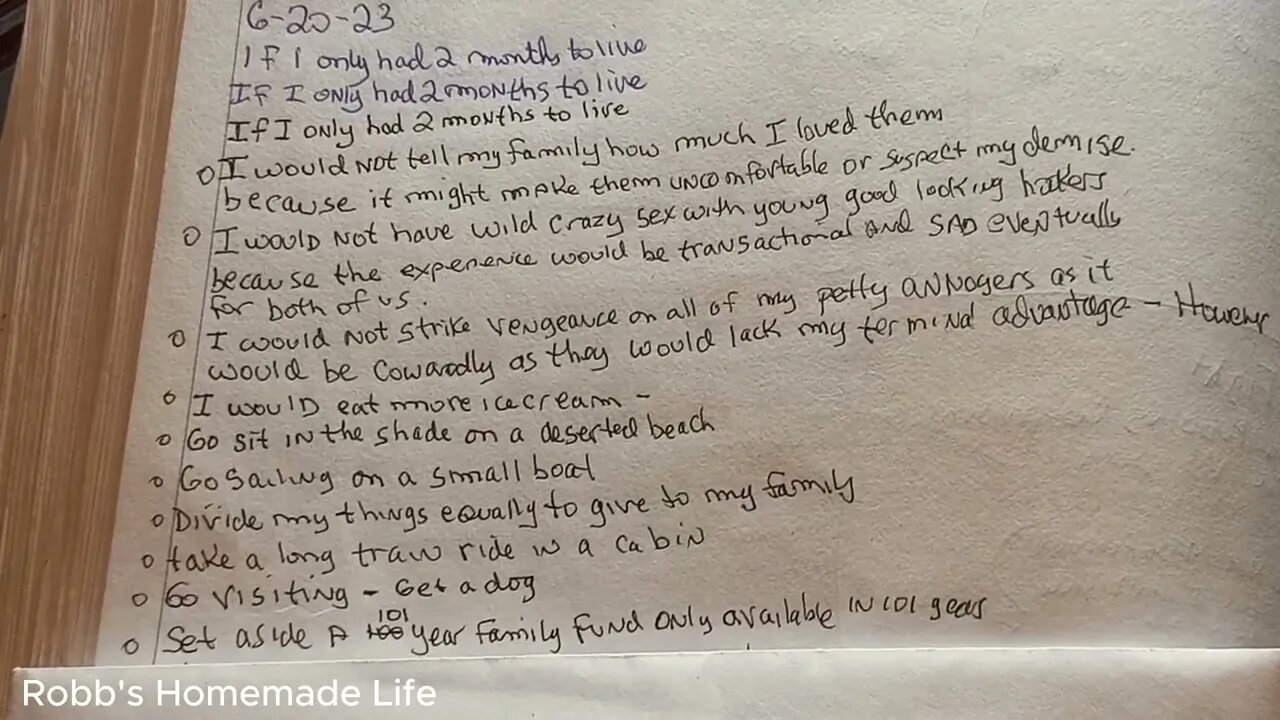 6-20-23
If I only had 2 months to live
If I only had 2 months to live
If I only had 2 months to live
o I would not tell my family how much I loved them
because it might make them uncomfortable or suspect my demise.
o I would not have wild crazy sex with young good looking hookers
because the experience would be transactional and SAD eventually
for both of us.
o I would not strike vengeance on all of my petty annoyers as it
would be cowardly as they would lack my terminal advantage - However
o I would eat more ice cream -
o Go sit in the shade on a deserted beach
o Go sailing on a small boat
o Divide my things equally to give to my family
o take a long train ride in a cabin
o Go visiting - Get a dog
o Set aside A 101 year family fund only available in 101 years
Robb's Homemade Life